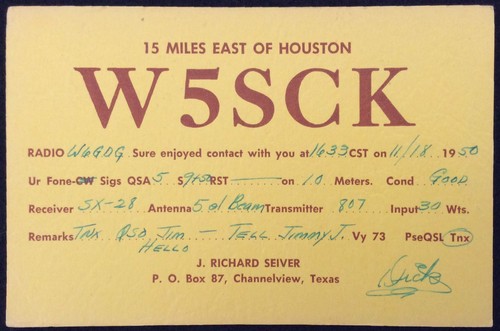 15 MILES EAST OF HOUSTON
W5SCK
RADIO W6GDG Sure enjoyed contact with you at 1633 CST on 11/18 1950
Ur Fone-CW Sigs QSA 5 S 9+50 RST — on 10 Meters. Cond GOOD
Receiver SX-28 Antenna 5 el Beam Transmitter 807 Input 30 Wts.
Remarks TNX QSO JIM — TELL JIMMY J. Vy 73 PseQSL Tnx
HELLO
J. RICHARD SEIVER
P. O. Box 87, Channelview, Texas
Dick